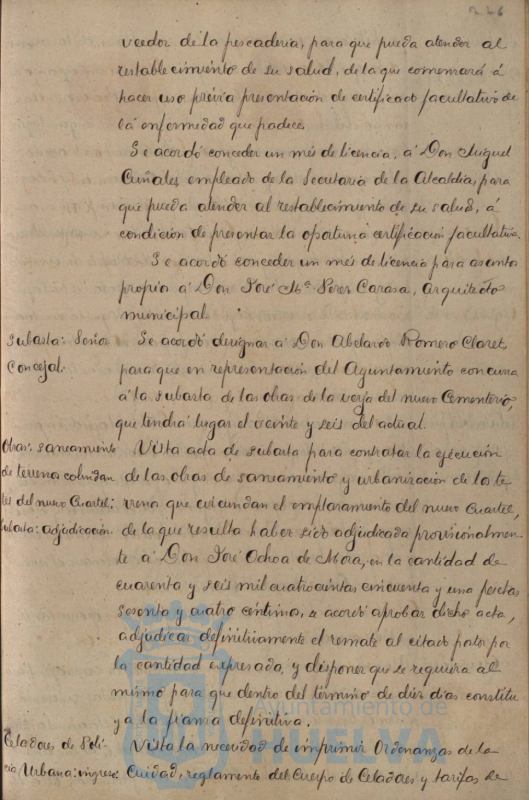 226
veedor de la pescadería, para que pueda atender al
restablecimiento de su salud, de la que comenzará á
hacer uso prévia presentación de certificado facultativo de
la enfermedad que padece.
Se acordó conceder un més de licencia, á Don Miguel
Cuñales, empleado de la Secretaría de la Alcaldía, para
que pueda atender al restablecimiento de su salud, á
condición de presentar la oportuna certificación facultativa.
Se acordó conceder un més de licencia para asuntos
propios á Don José Mª Perez Carasa, Arquitecto
municipal.
Subasta: Señor
Concejal.
Se acordó designar á Don Abelardo Romero Claret,
para que en representación del Ayuntamiento concurra
á la subasta de las obras de la verja del nuevo Cementerio,
que tendrá lugar el veinte y seis del actual.
Obras: saneamiento
de terrenos colindan
tes del nuevo Cuartel;
subasta: adjudicación
Vista acta de subasta para contratar la ejecución
de las obras de saneamiento y urbanización de los te-
rrenos que circundan el emplazamiento del nuevo Cuartel,
de la que resulta haber sido adjudicada provisionalmen-
te á Don José Ochoa de Mora, en la cantidad de
cuarenta y seis mil cuatrocientas cincuenta y una pesetas
sesenta y cuatro céntimos, se acordó aprobar dicho acta,
adjudicar definitivamente el remate al citado postor por
la cantidad expresada, y disponer que se requiera al
mismo para que dentro del término de diéz dias constitu-
ya la fianza definitiva.
Celadores de Poli-
cía Urbana: ingreso:
Vista la necesidad de imprimir Ordenanzas de la
Ciudad, reglamento del Cuerpo de Celadores y tarifas de
Ayuntamiento de
HUELVA